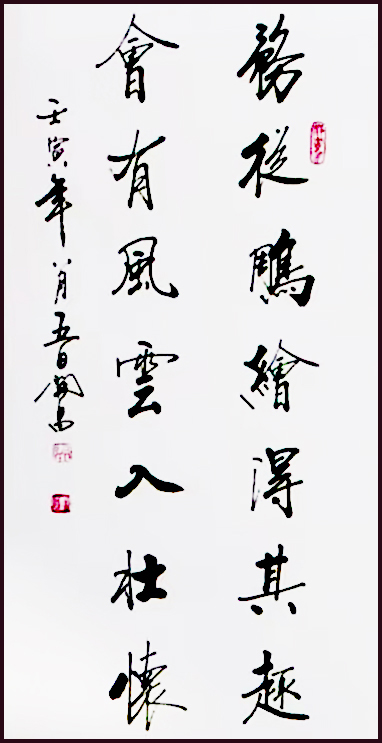 務從鵰繪得其趣
會有風雲入壯懷
壬寅年八月五日